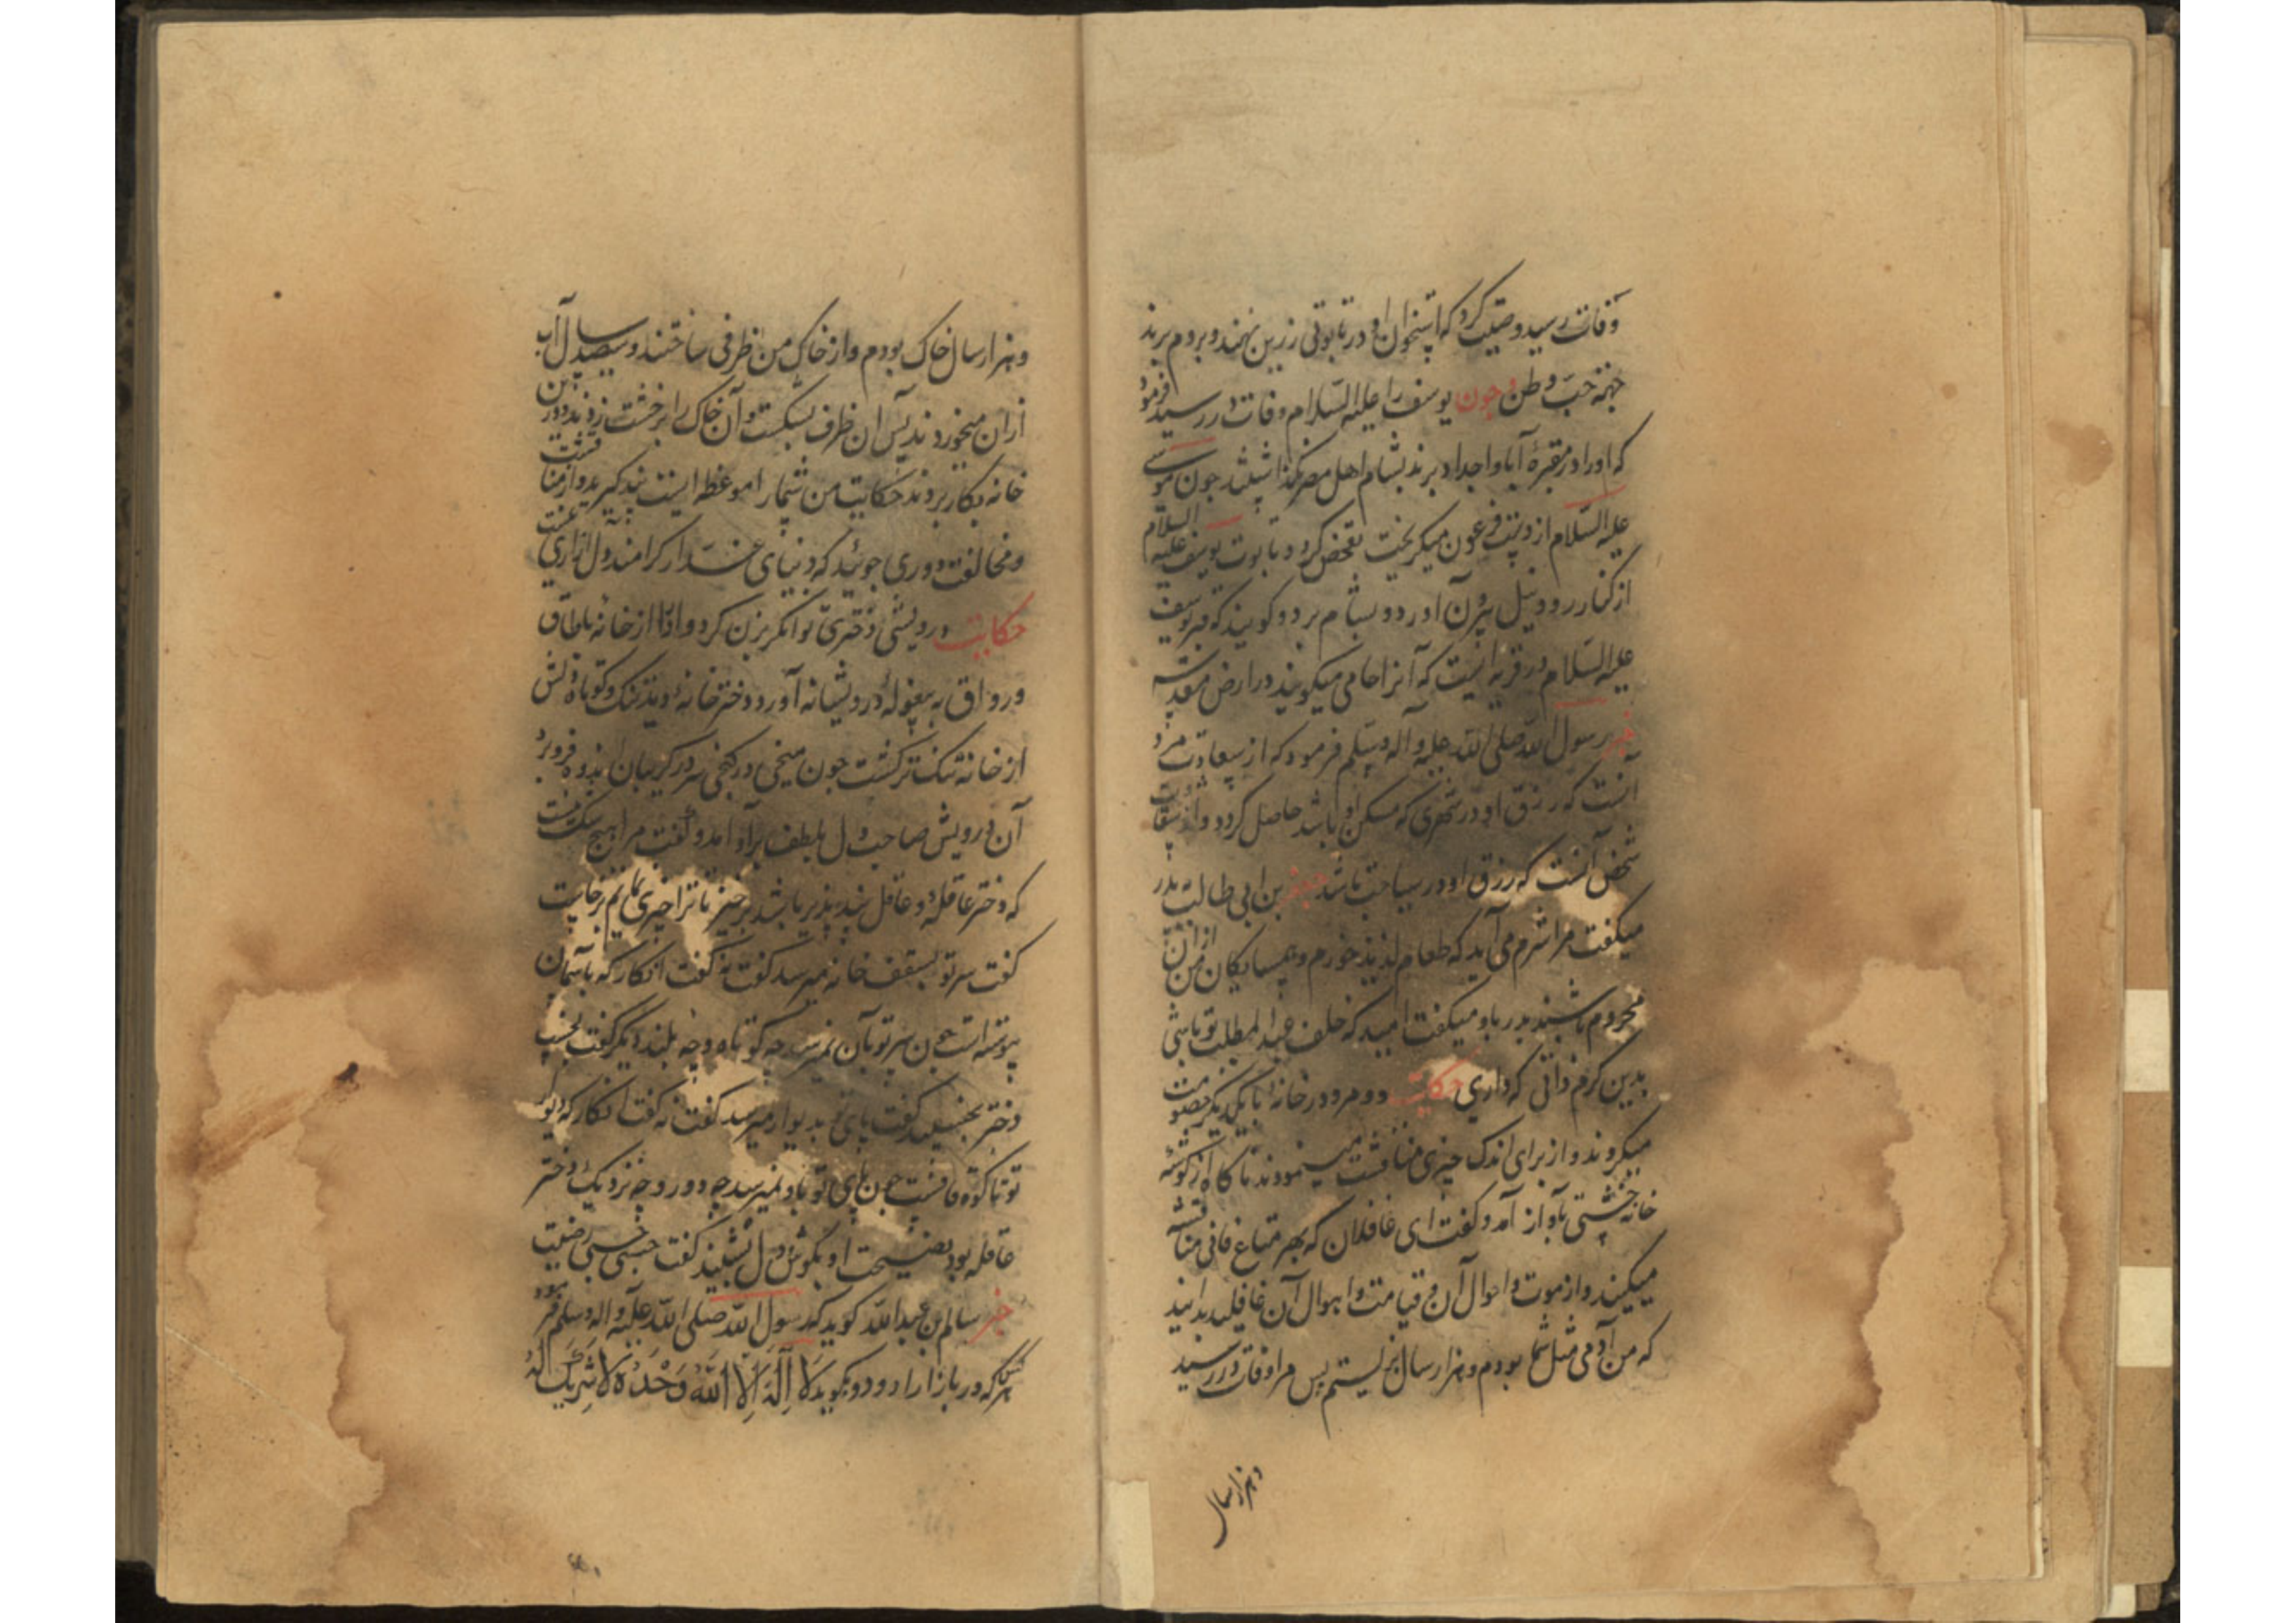 وفات رسید وصیت کرد که استخوان او در تابوتی زرین نهند و بروم برند
جهته حب وطن و چون یوسف را علیه السلام وفات در رسید فرمود
که او را در مقبرهٔ آبا و اجداد برند بشام اهل مصر نگذاشتند چون موسی
علیه السلام از دست فرعون میگریخت تفحص کرد و تابوت یوسف علیه السلام
از کنار رود نیل بیرون آورد و بشام برد و گویند که قبر یوسف
علیه السلام در قریه ایست که آنرا حامی میگویند در ارض مقدسه
خبر رسول الله صلی الله علیه و آله وسلم فرمود که از سعادت مرد
انست که رزق او در شهری که مسکن او باشد حاصل گردد و از شقاوت
شخص آنست که رزق او در سیاحت باشد جعفر بن ابی طالب به پدر
میگفت مرا شرم می آید که طعام لذیذ خورم و همسایگان من از ان
محروم باشند پدر باو میگفت امید که خلف عبد المطلب تو باشی
بدین کرم ذاتی که داری حکایت دو مرد در خانهٔ با یکدیگر خصومت
میکردند و از برای اندک چیزی مناقشت مینمودند ناگاه از گوشهٔ
خانه خشتی بآواز آمد و گفت ای غافلان که بهر متاع فانی مناقشه
میکنید و از موت و احوال آن و قیامت و اهوال آن غافلید بدانید
که من آدمی مثل شما بودم و هزار سال بزیستم پس مرا وفات در رسید
و هزار سال
و هزار سال خاک بودم و از خاک من ظرفی ساختند و سیصد سال آب
از ان میخوردند پس ان ظرف بشکست و آن خاک را بر خشت زدند و درین
خانه بکار بردند حکایت من شما را موعظه ایست پند گیرید و از مناقشت
و مخالفت دوری جوئید که دنیای غدار کرا مند دل ازاری نیست
حکایت درویشی دختری توانگر بزن کرد و او را از خانه با طاق
و رواق به بیغولهٔ درویشانه آورد دختر خانهٔ دید تنک و کوتاه دلش
از خانه تنک تر گشت چون میخی در کنجی سر در گریبان اندوه فرو برد
آن درویش صاحب دل بلطف برآو امد و گفت مرا هیچ شک نیست
که دختر عاقلهٔ و عاقل پند پذیر باشد برخیز تا ترا چیزی نمایم برخاست
گفت سر تو بسقف خانه میرسد گفت نه گفت انکار که باسمان
پیوسته است چون سر تو بآن نمیرسد چه کوتاه و چه بلند دیگر گفت بخسپ
دختر بخسپید گفت پای تو بدیوار میرسد گفت نه گفت انکار که دیوار
تو تا کوه قافست چون پای تو باو نمیرسد چه دور و چه نزدیک دختر
عاقله بود نصیحت او بگوش دل بشنید گفت حسبی حسبی رضیت
خبر سالم بن عبد الله گوید که رسول الله صلی الله علیه و اله وسلم فرمود
هر کس که در بازار در رود و بگوید لَا اِلٰهَ اِلَّا اللّٰهُ وَحْدَهُ لَا شَرِیْکَ لَهُ